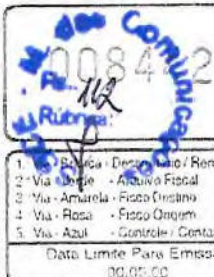 M. das Comunicações
00844
Fls. 162
Rúbrica:
1. Via - Branca - Destinatário / Rem
2. Via - Verde - Arquivo Fiscal
3. Via - Amarela - Fisco Destino
4. Via - Rosa - Fisco Origem
5. Via - Azul - Controle / Conta
Data Limite Para Emiss
00.00.00